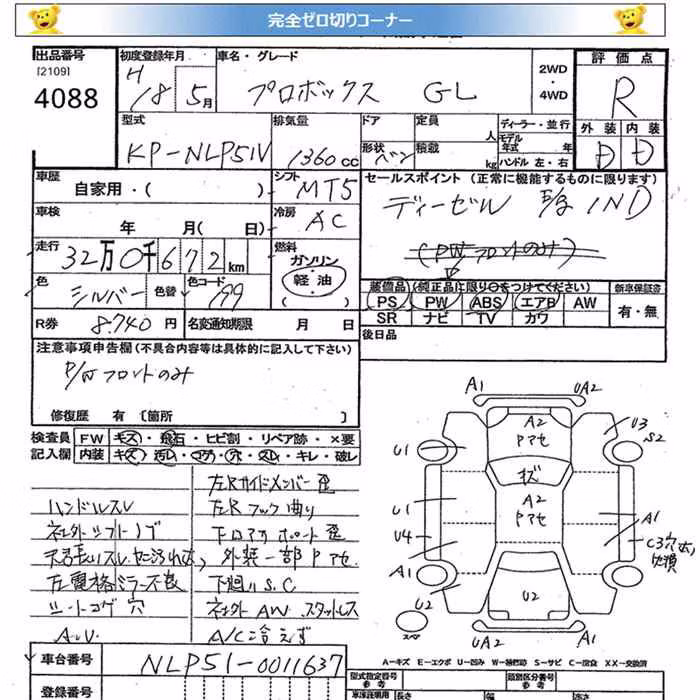 完全ゼロ切りコーナー
出品番号
[2109]
4088
初度登録年月
H18 5月
車名・グレード
プロボックス GL
2WD
・
4WD
評価点
R
外装 内装
D D
型式
KP-NLP51V
排気量
1360cc
ドア
形状 バン
定員 人
積載 kg
ディーラー・並行
モデル年式 年
ハンドル 左・右
車歴
自家用・( )
シフト
MT5
車検
年 月( 日)
冷房
AC
走行
32万0千672km
燃料
ガソリン
軽油
色
シルバー
色替
色コード
199
R券 8740円
名変通知期限 月 日
セールスポイント (正常に機能するものに限ります)
ディーゼル 1ND
(PWフロントのみ)
装備品 (純正品に限り○をつけてください)
PS PW ABS エアB AW
SR ナビ TV カワ
新車保証書
有・無
後日品
注意事項申告欄 (不具合内容等は具体的に記入して下さい)
P/Wフロントのみ
修復歴 有 [箇所
検査員記入欄
FW キズ・飛石・ヒビ割・リペア跡・×要
内装 キズ・汚レ・コゲ・穴・スレ・キレ・破レ
ハンドルスレ
社外シフトノブ
左電格ミラー不良
シートコゲ穴
A.U.
左Rサイドメンバー歪
左Rフック曲り
下回りS.C
外装一部Pアセ
社外AW スタッドレス
A/C冷えず
A1
UA2
A2
Pアセ
U3
S2
U1
キズ
U1
A2
Pアセ
A1
U4
C3穴
A1
U2
U2
スペア
UA2
A1
A-キズ E-エクボ U-凹み W-補修跡 S-サビ C-腐食 XX-交換済
車台番号
NLP51-0011637
登録番号
型式指定番号
参考
類別区分番号
参考
長さ
幅
高さ